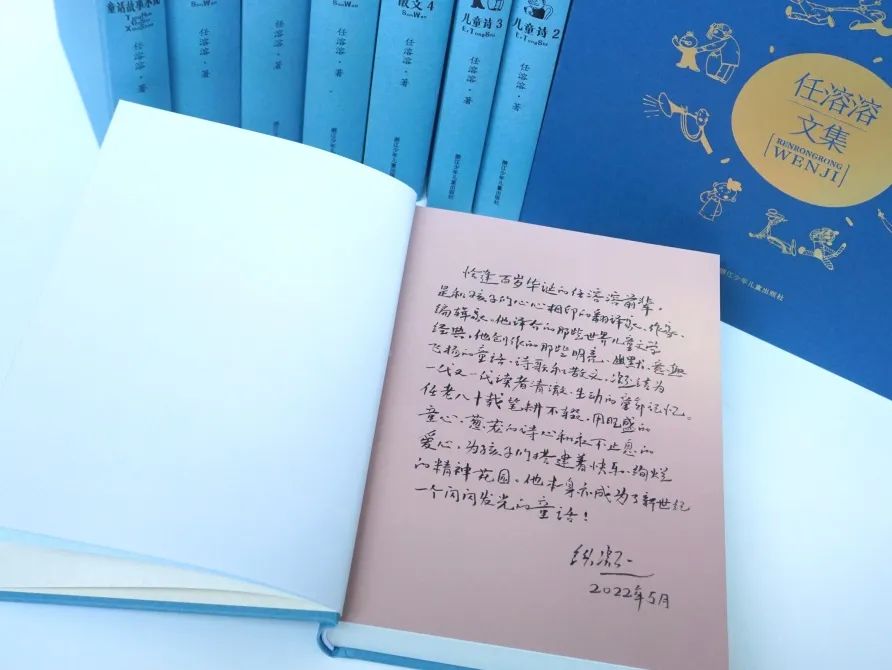 童话故事小说
任溶溶·著
SanWen
任溶溶·著
任溶溶·著
SanWen
任溶溶·著
散文4
SanWen
任溶溶·著
浙江少年儿童出版社
儿童诗3
ErTongShi
任溶溶·著
浙江少年儿童出版社
儿童诗2
ErTongShi
任溶溶·著
浙江少年儿童出版社
任溶溶
文集
RENRONGRONG
WENJI
浙江少年儿童出版社
恰逢百岁华诞的任溶溶前辈,
是和孩子们心心相印的翻译家、作家、
编辑家。他译介的那些世界儿童文学
经典,他创作的那些明亮、幽默、意趣
飞扬的童话、诗歌和散文,凝结为
一代又一代读者清澈、生动的童年记忆。
任老八十载笔耕不辍,用旺盛的
童心、葱茏的诗心和永不止息的
爱心,为孩子们搭建着快乐、绚烂
的精神花园。他本身亦成为了新世纪
一个闪闪发光的童话!
铁凝
2022年5月